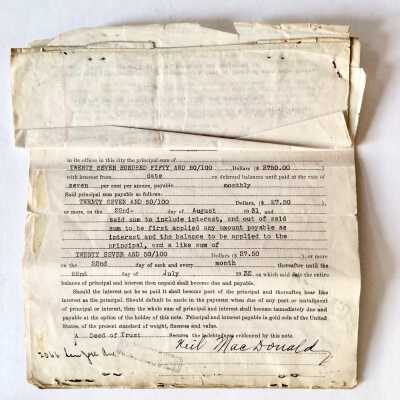 in its office in this city the principal sum of
TWENTY SEVEN HUNDRED FIFTY AND 50/100 Dollars ($ 2750.00 )
with interest from date on deferred balances until paid at the rate of
seven per cent per annum, payable monthly
Said principal sum payable as follows:
TWENTY SEVEN AND 50/100 Dollars ($ 27.50 )
or more, on the 22nd- day of August 19 31, and
said sum to include interest, and out of said
sum to be first applied any amount payable as
interest and the balance to be applied to the
principal, and a like sum of
TWENTY SEVEN AND 50/100 Dollars ($ 27.50 )
or more on the 22nd day of each and every month thereafter until the
22nd day of July 19 32, on which said date the entire
balance of principal and interest then unpaid shall become due and payable.
Should the interest not be so paid it shall become part of the principal and thereafter bear like
interest as the principal. Should default be made in the payment when due of any part or installment
of principal or interest, then the whole sum of principal and interest shall become immediately due and
payable at the option of the holder of this note. Principal and interest payable in gold coin of the United
States, of the present standard of weight, fineness and value.
A Deed of Trust Secures the indebtedness evidenced by this note.
Neil MacDonald